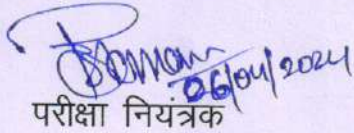 06/04/2024
परीक्षा नियंत्रक